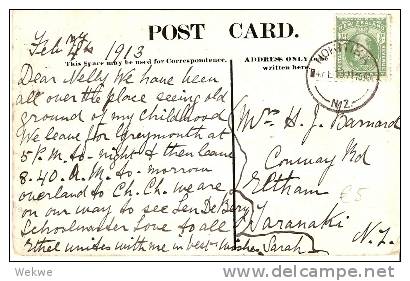 POST CARD.
Feby 4th 1913
This Space may be used for Correspondence.
ADDRESS ONLY
written here.
Dear Nelly We have been
all over the place seeing old
ground of my childhood
We leave for Greymouth at
5 P.M. to-night & then leave
8.40 A.M. to-morrow
overland to Ch. Ch. we are
on our way to see Len De Bery
Schoolmaster Love to all
Ethel unites with me in best wishes Sarah
NEW ZEALAND
HOKITIKA
N.Z.
Mrs H. J. Barnard
Conway Rd
Eltham
Taranaki
N.Z.
£5
Wekwe
www.delcampe.net